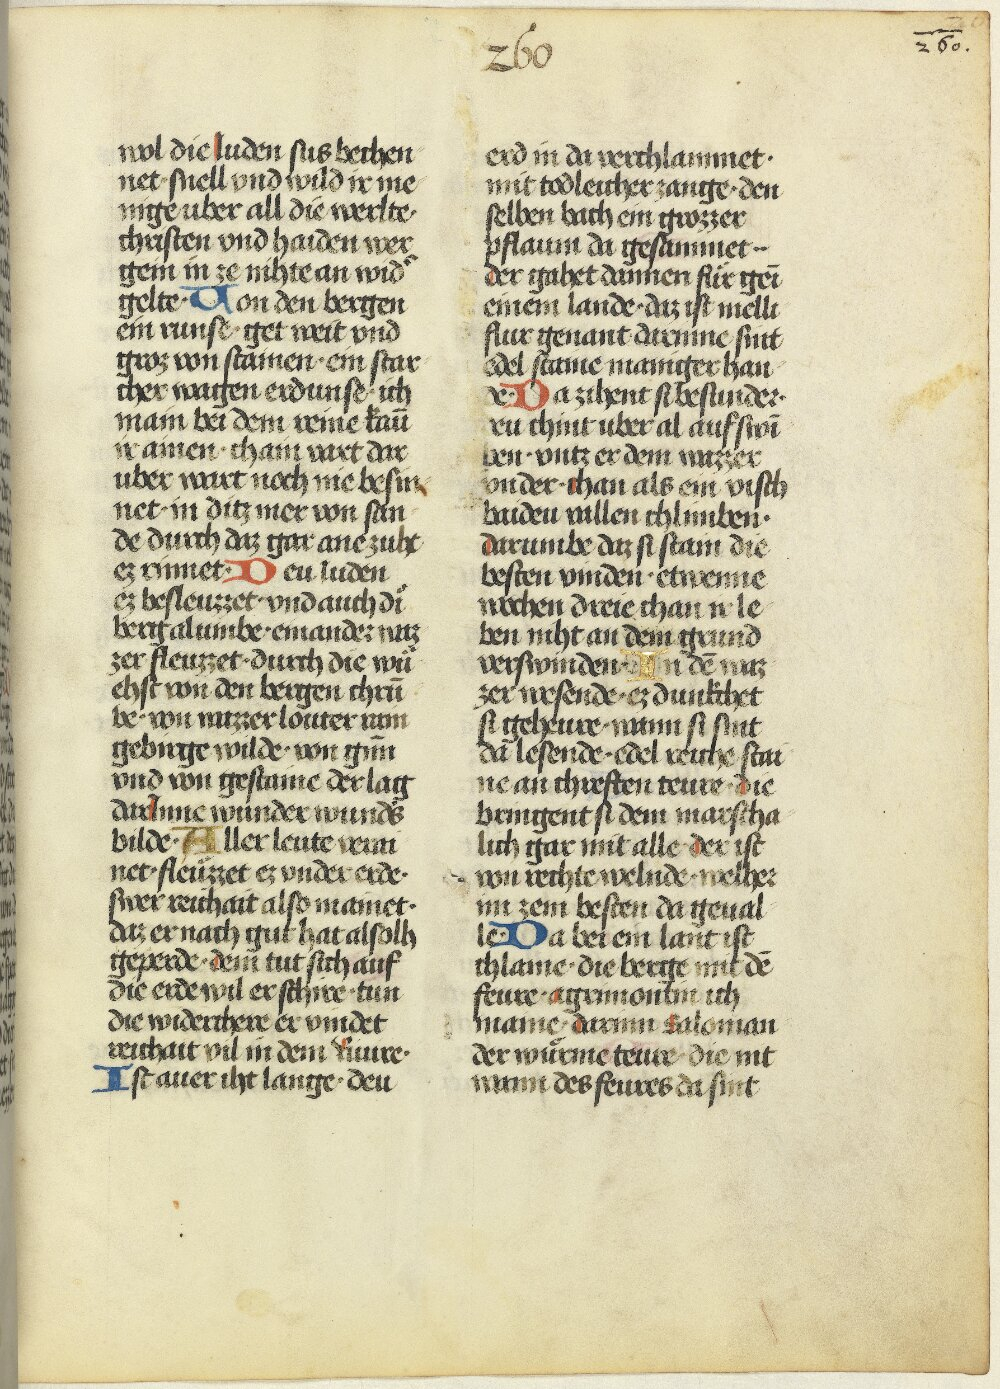 260
260.
wol die luden sus bechen
net · snell vnd wild ir me
nige uber all die werlte ·
christen vnd haiden wer
gem in ze nihte an wid͛
gelte · Von den bergen
ein runse · get weit vnd
groz von stainen · ein star
cher wagen erdunse · ich
main bei dem reine kaū
ir ainen · chain vart dar
uber wart noch nie besin
net · in ditz mer von san
de durch daz gar ane zuht
ez rinnet · Deu luden
ez besleuzzet · vnd auch di
berg alumbe · einander waz
zer fleuzzet · durch die wu
ehst von den bergen chrū
be · von wazzer louter
gebirge wilde · von
vnd von gestaine der lag
darinne wunder wund͛s
bilde · Aller leute
net · fleuzzet ez vnder erde ·
swer reichait also mainet ·
daz er nach gut hat alsolh
geperde · dem tut sich auf
die erde wil er schire · tun
die widerchere er vindet
reichait vil in dem riuire ·
Ist auer iht lange · deu
erd in da verchlammet ·
mit todleicher zange · den
selben bach ein grozzer
pflaum da gesammet --
der gahet dannen für gei
einem lande · daz ist melli
flur genant darinne sint
edel staine maniger han
de · Da zihent si besunder ·
ir eu chint uber al auf swi
ben · vntz er dem wazzer
vnder · chan als ein visch
baideu willen chlimben ·
darumbe daz si stain die
besten vinden · etwenne
wochen dreie chan ir le
ben niht an dem grund
verswinden · In dē waz
zer wesende · ez dunkchet
si geheure · wann si sint
da lesende · edel reiche stai
ne an chreften teure · die
bringent si dem marscha
lich gar mit alle · der ist
von rechte welnde · welher
im zem besten da geual
le · Da bei ein lant ist
chlaine · die berge mit dē
feure · agrimontin ich
maine · darinn saloman
der würme teure · die nit
wann des feures da sint